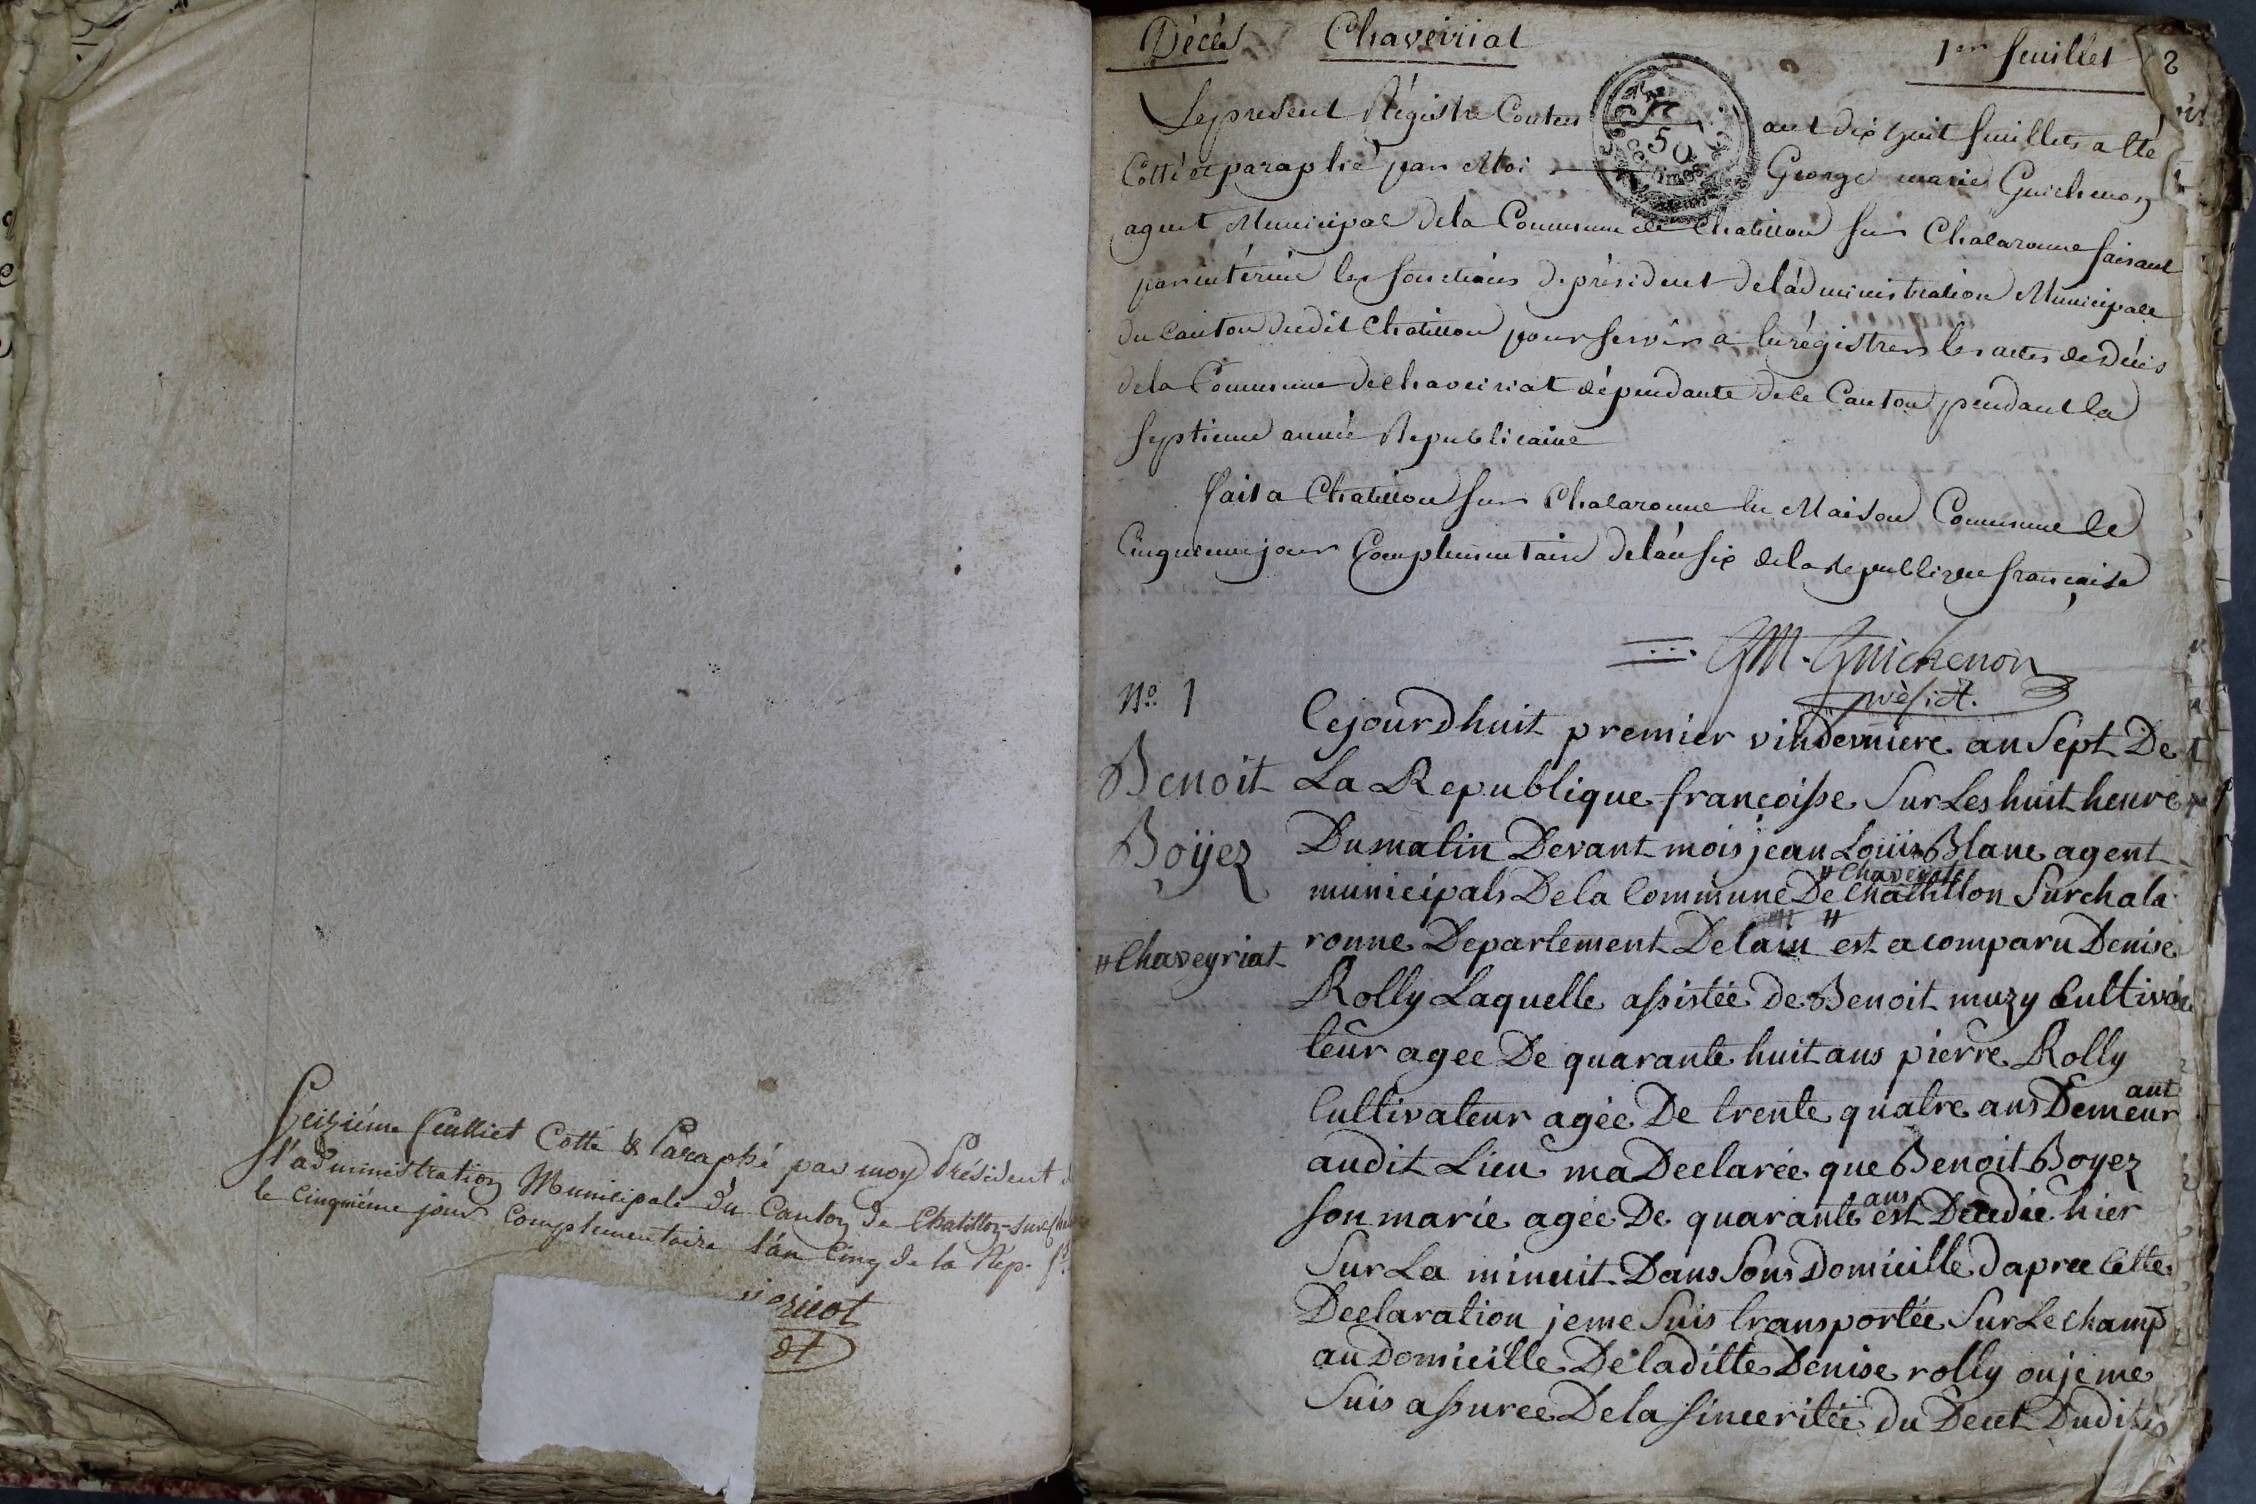 Seizième feuillet Cotté & Paraphé par moy Président
l'administration Municipale du Canton de Chatillon-sur-
le cinquième jour complementaire l'an cinq de la Rep.
Décès Chaveiriat 1er feuillet
Le present Régistre Conten ant dix huit feuillets a été
Cotté et paraphé par Moi George marie Guichenon
agent Municipal de la Commune de Chatillon sur Chalaronne faisant
par intérim les fonctions de président de l'administration Municipale
du Canton dudit Chatillon pour servir a enrégistrer les actes de Décès
de la Commune de Chaveiriat dépendante de ce Canton pendant la
septieme année Republicaine
fait a Chatillon sur Chalaronne en Maison Commune le
Cinquieme jour Complementaire de l'an six de la republique française
GM. Guichenon
présidt.
No. 1
Benoit
Boÿez
# Chaveyriat
Cejourdhuit premier vindemiere an Sept De
La Republique françoisse Sur Les huit heure
Du matin Devant mois jean Louis Blanc agent
# Chaveyriat
municipals De la Commune De Chatillon Sur chala
ronne Departement De lain # est a comparu Denise
Rolly Laquelle assistée De Benoit muzy Cultiva
teur agee De quarante huit ans pierre Rolly
Cultivateur agée De trente quatre ans Demeurant
audit Lieu ma Declarée que Benoit Boyez
son marie agée De quarante ans est Decedée hier
Sur La minuit Dans Sons Domicille Dapree Cette
Declaration je me Suis transportée Sur Le champ
au Domicille De laditte Denise rolly ou je me
Suis assuree De la sinceritée du Decet Dudit